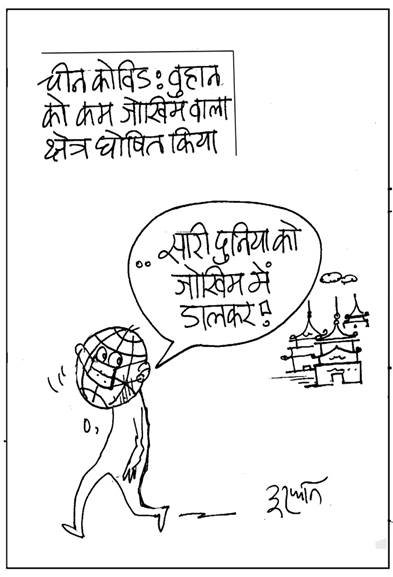 चीन कोविड : वुहान
को कम जोखिम वाला
क्षेत्र घोषित किया
.. सारी दुनिया को
जोखिम में
डालकर !